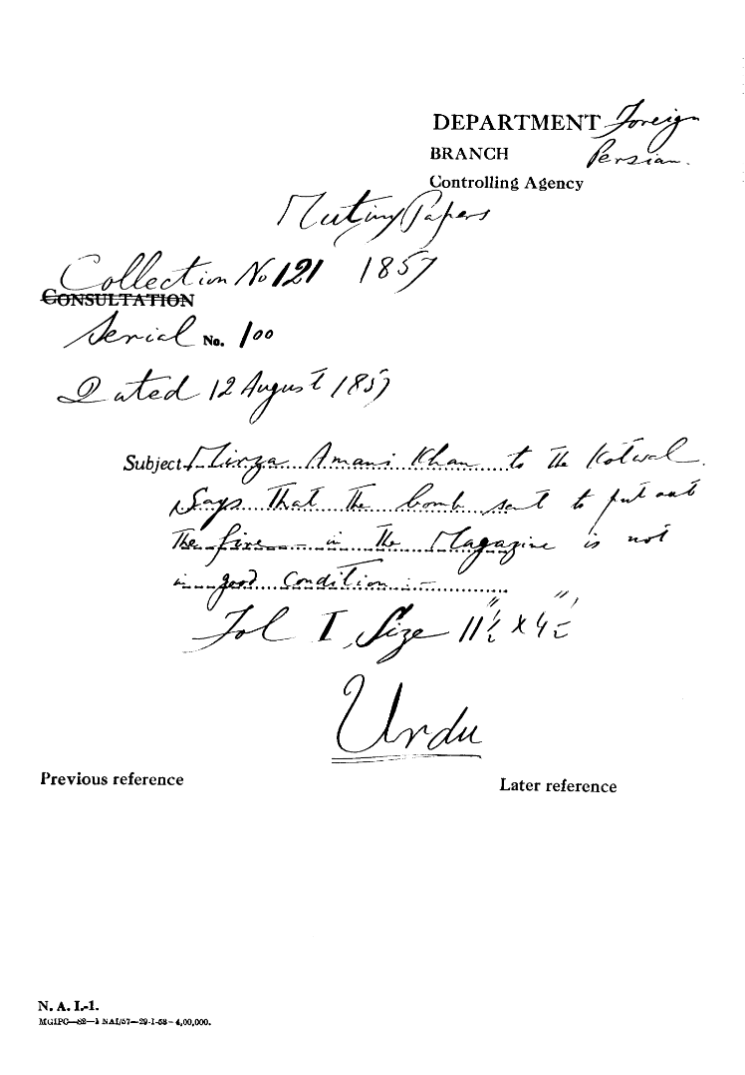 DEPARTMENT Foreign
BRANCH Persian.
Controlling Agency
Mutiny Papers
Collection No 121 1857
CONSULTATION
Serial No. 100
Dated 12 August 1857
Subject Mirza Amani Khan to the Kotwal.
Says that the bomb sent to put out
the fire in the Magazine is not
in good condition.-
Fol I, Size 11½" x 4½"
Urdu
Previous reference
Later reference
N. A. I.-1.
MGIPC—82—1 NAI/57—29-1-58—4,00,000.